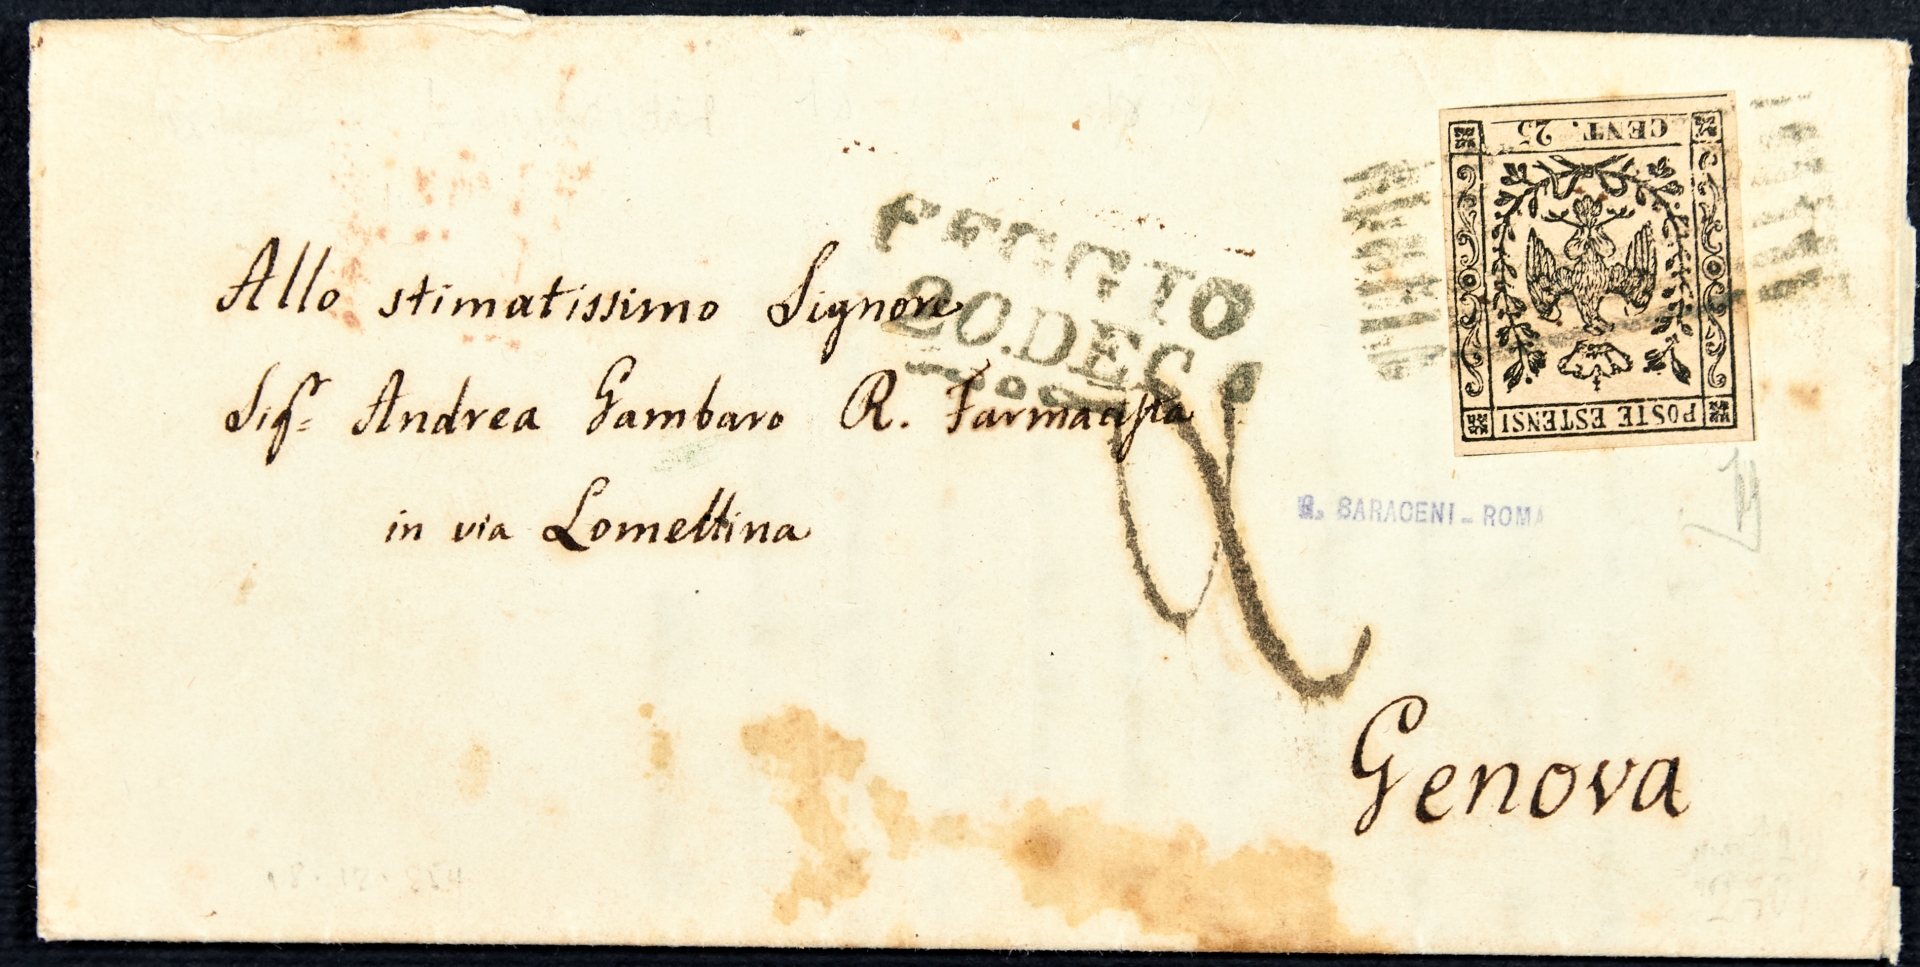 CENT. 25
POSTE ESTENSI
REGGIO
20.DEC.
Allo stimatissimo Signore
Sigr. Andrea Gambaro R. Farmacista
in via Lomellina
Genova
SARACENI - ROMA